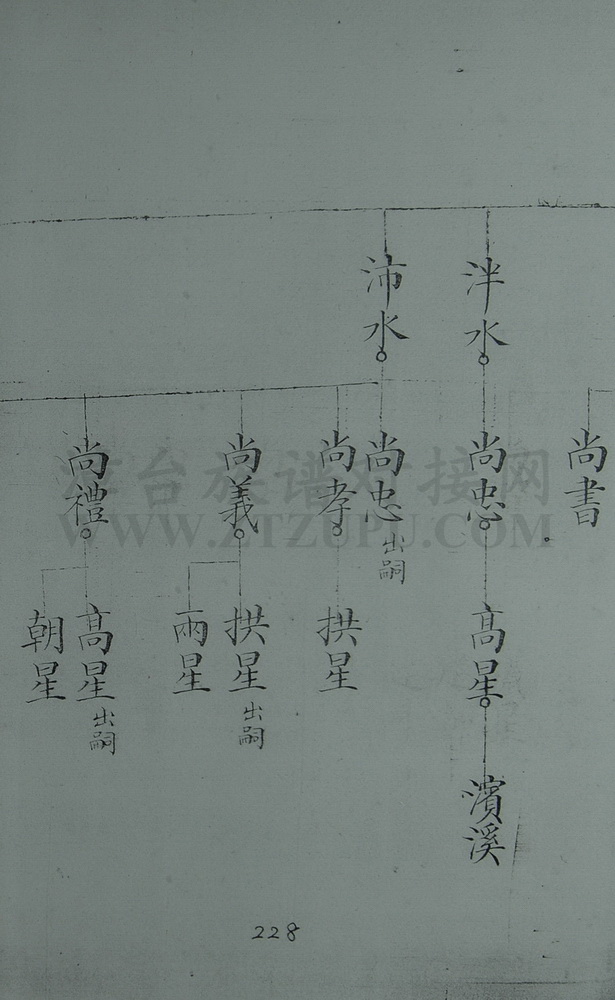 泮水
沛水
尚書
尚忠
尚忠 出嗣
尚孝
尚義
尚禮
高星
拱星
拱星 出嗣
兩星
高星 出嗣
朝星
濱溪
台族谱对接网
WWW.ZTZUPU.COM
228